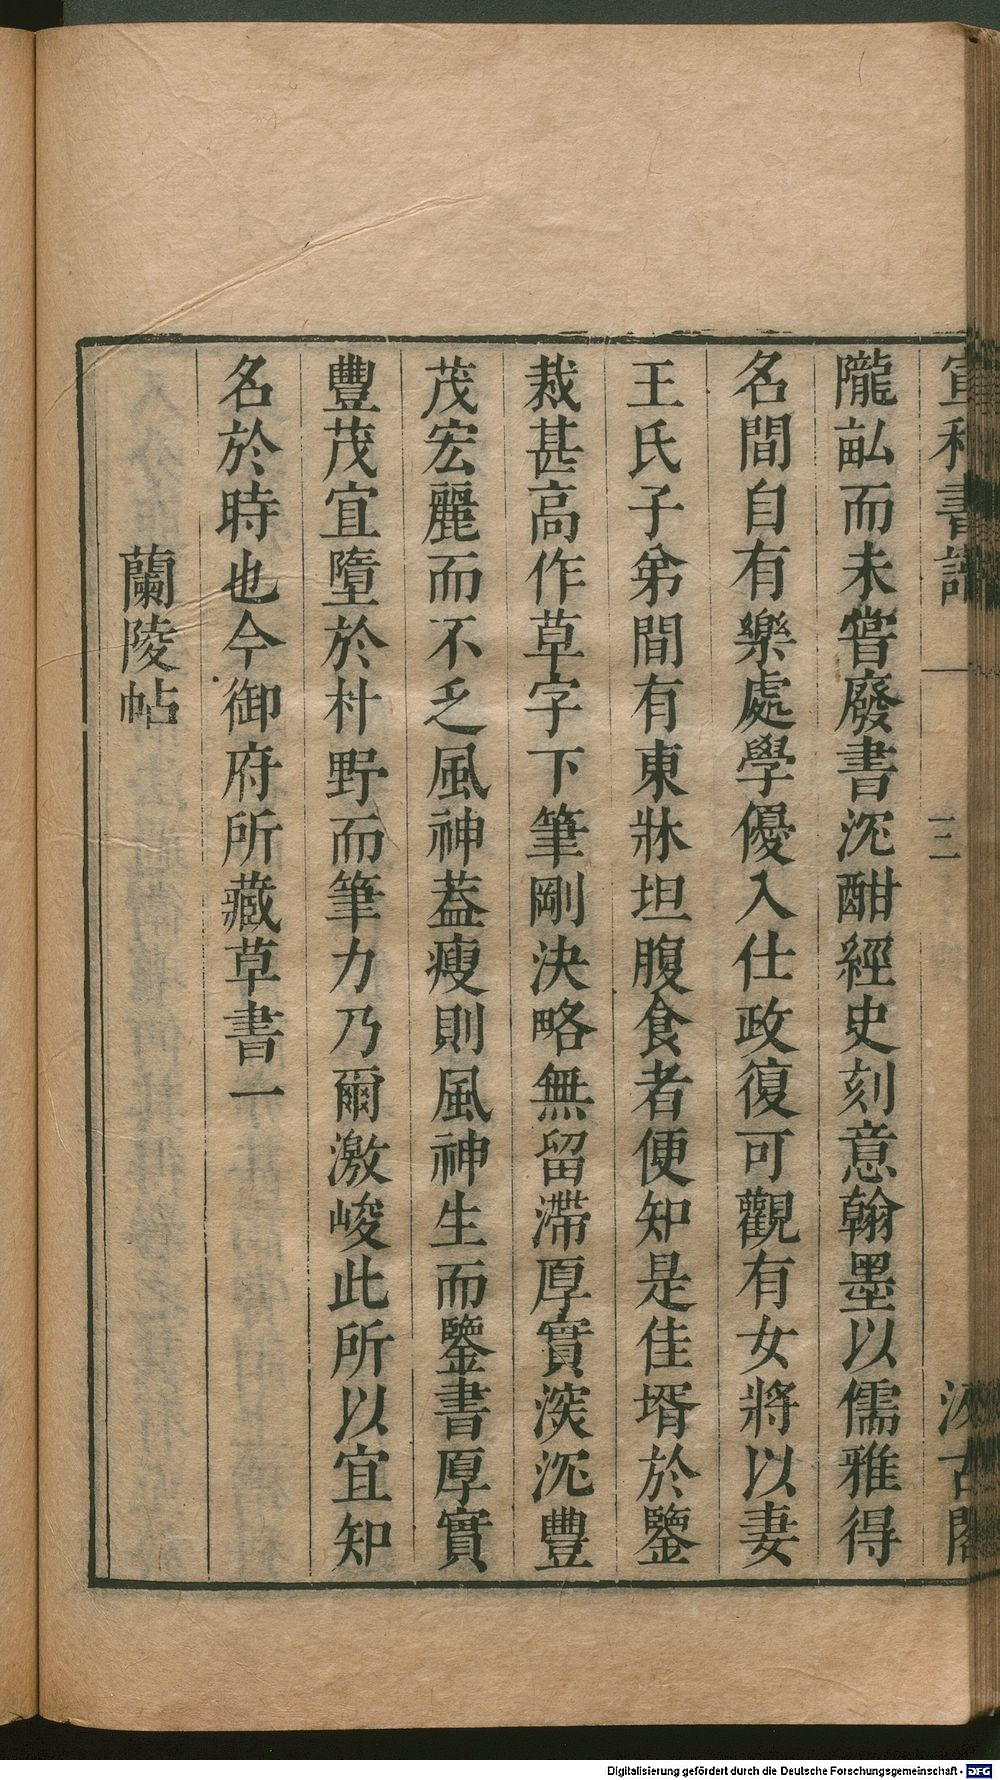 宣和書譜 一 三 汲古閣
隴畆而未嘗廢書沉酣經史刻意翰墨以儒雅得
名間自有樂處學優入仕政復可觀有女將以妻
王氏子弟間有東牀坦腹食者便知是佳壻於鑒
裁甚高作草字下筆剛決略無留滯厚實深沉豐
茂宏麗而不乏風神蓋瘦則風神生而鑒書厚實
豐茂宜墮於村野而筆力乃爾激峻此所以宜知
名於時也今御府所藏草書一
蘭陵帖
Digitalisierung gefördert durch die Deutsche Forschungsgemeinschaft - DFG